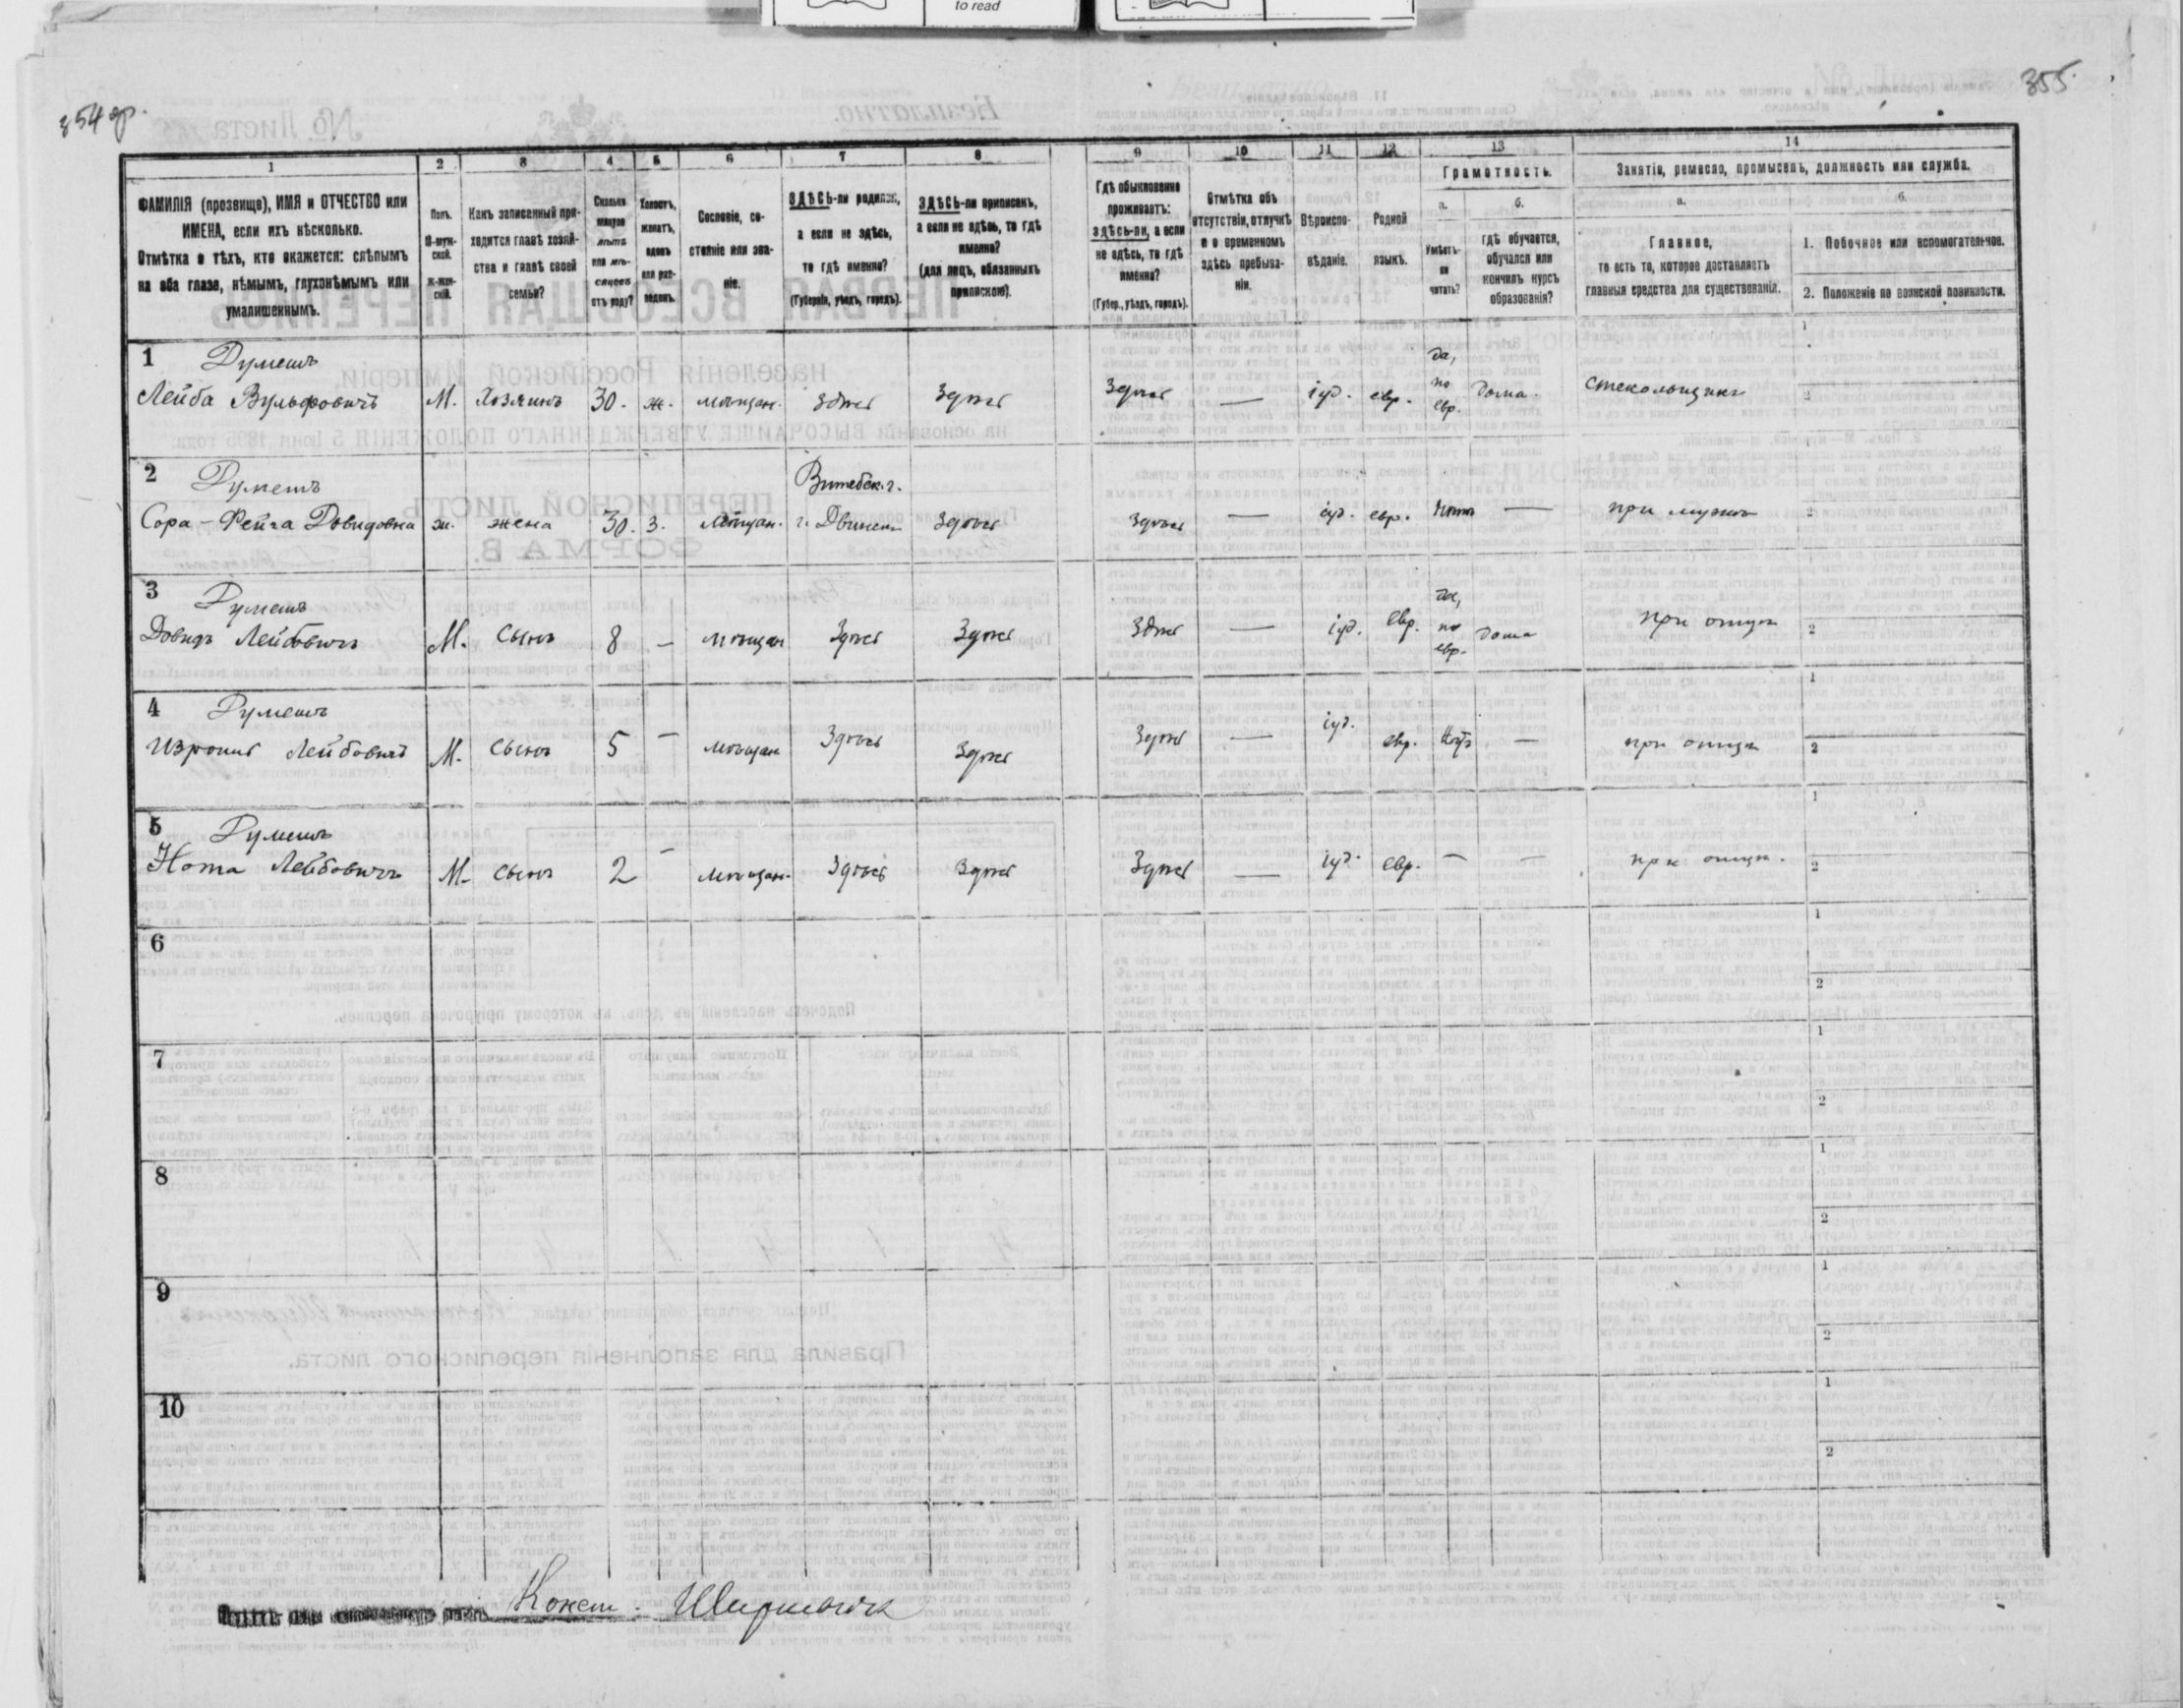 to read
354 об.
355.
1
2
3
4
5
6
7
8
9
10
11
12
13
14
ФАМИЛІЯ (прозвище), ИМЯ и ОТЧЕСТВО или
ИМЕНА, если ихъ нѣсколько.
Отмѣтка о тѣхъ, кто окажется: слѣпымъ
на оба глаза, нѣмымъ, глухонѣмымъ или
умалишеннымъ.
Полъ.
М-муж-
ской.
ж-жен-
скій.
Какъ записанный при-
ходится главѣ хозяй-
ства и главѣ своей
семьи?
Сколько
минуло
лѣтъ
или мѣ-
сяцевъ
отъ роду?
Холостъ,
женатъ,
вдовъ
или раз-
веденъ.
Сословіе, со-
стояніе или зва-
ніе.
ЗДѢСЬ-ли родился,
а если не здѣсь,
то гдѣ именно?
(Губернія, уѣздъ, городъ).
ЗДѢСЬ-ли приписанъ,
а если не здѣсь, то гдѣ
именно?
(для лицъ, обязанныхъ
припискою).
Гдѣ обыкновенно
проживаетъ:
здѣсь-ли, а если
не здѣсь, то гдѣ
именно?
(Губер., уѣздъ, городъ).
Отмѣтка объ
отсутствіи, отлучкѣ
и о временномъ
здѣсь пребыва-
ніи.
Вѣроиспо-
вѣданіе.
Родной
языкъ.
Грамотность.
а.
Умѣетъ-
ли
читать?
б.
гдѣ обучается,
обучался или
кончилъ курсъ
образованія?
Занятіе, ремесло, промыселъ, должность или служба.
а.
Главное,
то есть то, которое доставляетъ
главныя средства для существованія.
б.
1. Побочное или вспомогательное.
2. Положеніе по воинской повинности.
1 Думешъ
Лейба Вульфовичъ М. Хозяинъ 30. ж. мѣщан. здѣсь Здѣсь Здѣсь — іуд. евр. да, по евр. дома. стекольщикъ
2 Думешъ
Сора-Фейга Довидовна ж. жена 30. з. мѣщан. Витебск. г. г. Двинскъ Здѣсь Здѣсь — іуд. евр. Нѣтъ — при мужѣ
3 Думешъ
Довидъ Лейбовичъ М. Сынъ 8 — мѣщан Здѣсь Здѣсь Здѣсь — іуд. евр. да, по евр. дома при отцѣ
4 Думешъ
Лейбовичъ М. Сынъ 5 — мѣщан Здѣсь Здѣсь Здѣсь — іуд. евр. Нѣтъ — при отцѣ
5 Думешъ
Нота Лейбовичъ М. сынъ 2 — мѣщан. Здѣсь Здѣсь Здѣсь — іуд. евр. — — при отцѣ.
6
7
8
9
10